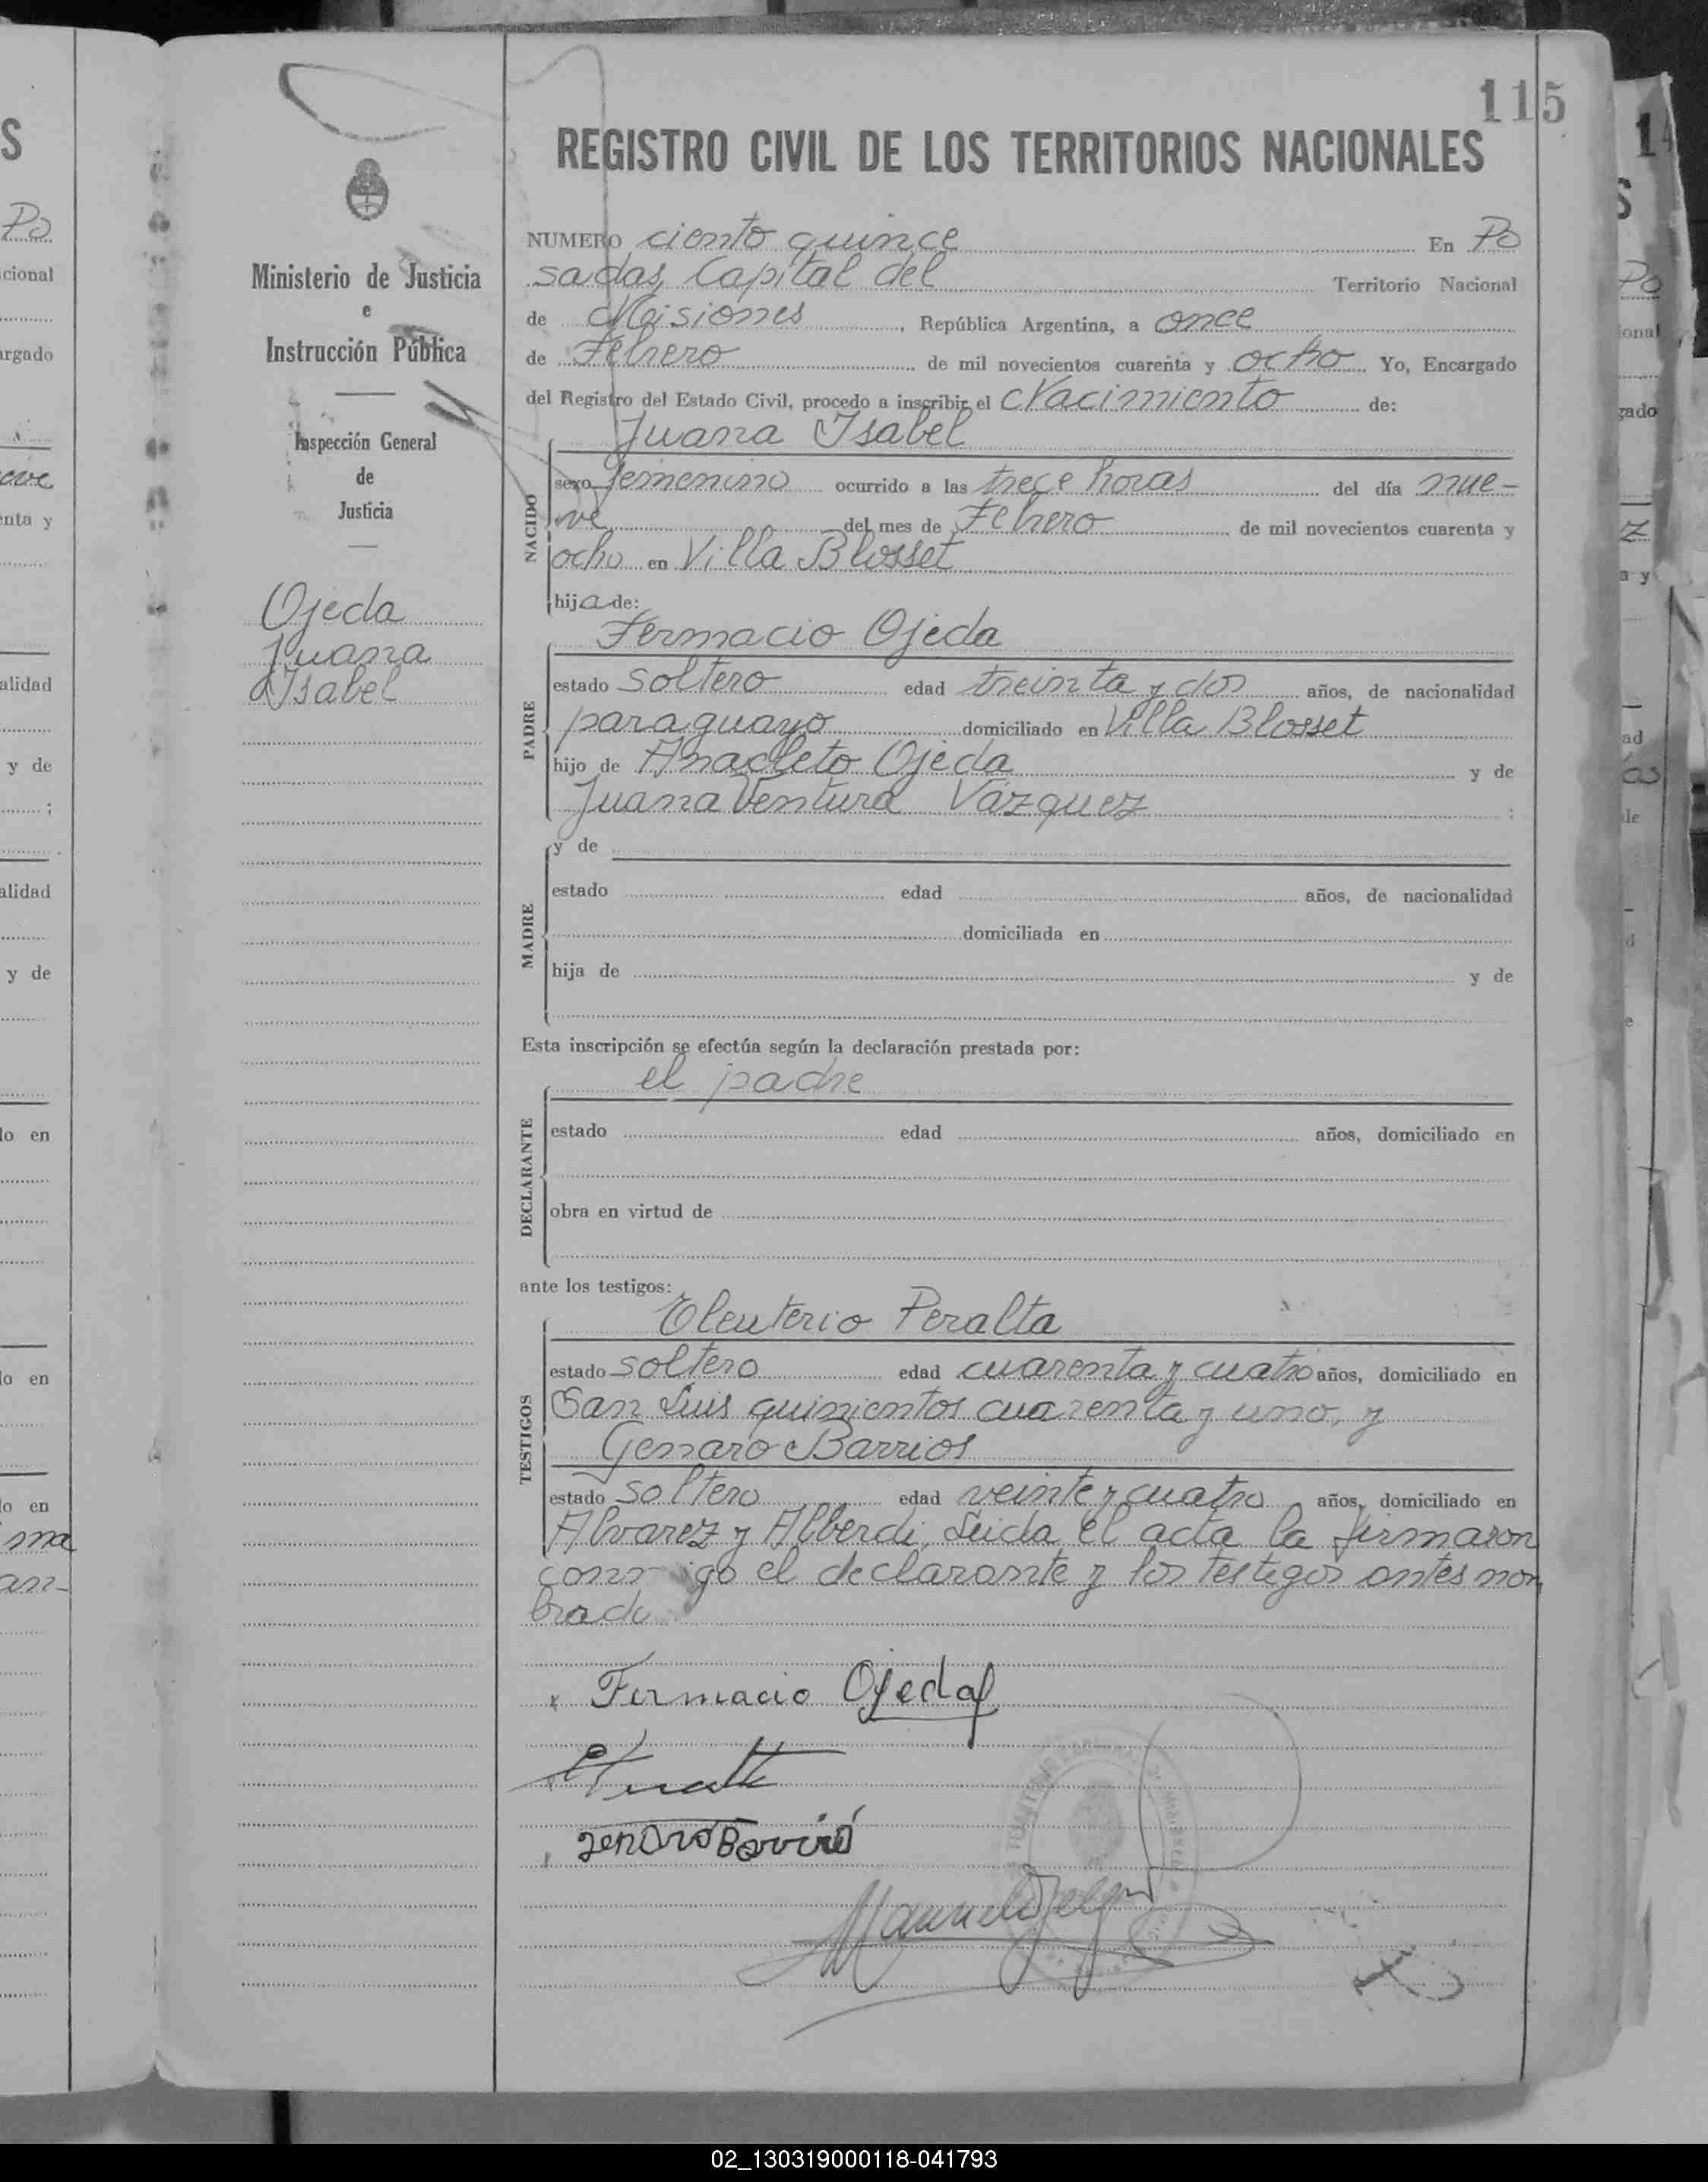 115
REGISTRO CIVIL DE LOS TERRITORIOS NACIONALES
Ministerio de Justicia
e
Instrucción Pública
Inspección General
de
Justicia
Ojeda
Juana
Isabel
NUMERO ciento quince En Po
sadas, Capital del Territorio Nacional
de Misiones, República Argentina, a once
de Febrero de mil novecientos cuarenta y ocho Yo, Encargado
del Registro del Estado Civil, procedo a inscribir el Nacimiento de:
Juana Isabel
NACIDO
sexo femenino ocurrido a las trece horas del día nue-
ve del mes de Febrero de mil novecientos cuarenta y
ocho en Villa Blosset
hija de:
Fermacio Ojeda
PADRE
estado soltero edad treinta y dos años, de nacionalidad
paraguayo domiciliado en Villa Blosset
hijo de Anacleto Ojeda y de
Juana Ventura Vázquez ;
MADRE
y de
estado edad años, de nacionalidad
domiciliada en
hija de y de
Esta inscripción se efectúa según la declaración prestada por:
el padre
DECLARANTE
estado edad años, domiciliado en
obra en virtud de
ante los testigos:
Eleuterio Peralta
TESTIGOS
estado soltero edad cuarenta y cuatro años, domiciliado en
San Luis quinientos cuarenta y uno, y
Genaro Barrios
estado soltero edad veinte y cuatro años, domiciliado en
Alvarez y Alberdi, Leida el acta la firmaron
conmigo el declarante y los testigos antes nom
brado
Fermacio Ojeda
Genaro Barrio
02_130319000118-041793